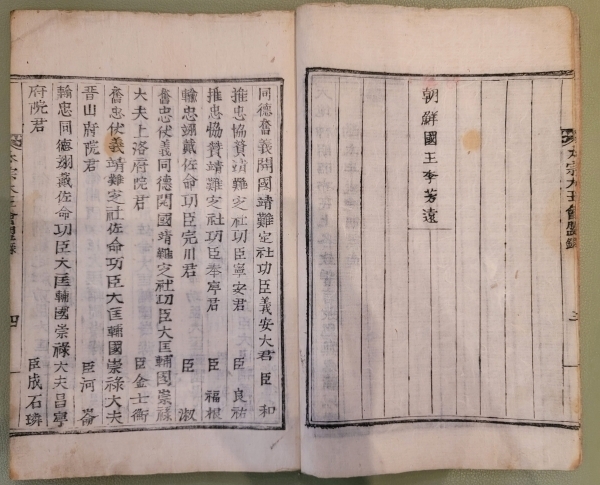 太宗大王會盟錄 三
朝鮮國王李芳遠
同德奮義開國靖難定社功臣義安大君 臣 和
推忠恊贊靖難㝎社功臣寧安君 臣 良祐
推忠恊贊靖難㝎社功臣奉寧君 臣 福根
輸忠翊戴佐命功臣完川君 臣 淑
奮忠伏義同德開國靖難㝎社功臣大匡輔國崇祿
大夫上洛府院君 臣 金士衡
奮忠伏義靖難㝎社佐命功臣大匡輔國崇祿大夫
晋山府院君 臣 河崙
翰忠同德翊戴佐命功臣大匡輔國崇祿大夫昌寧
府院君 臣 成石璘
太宗大王會盟錄 四